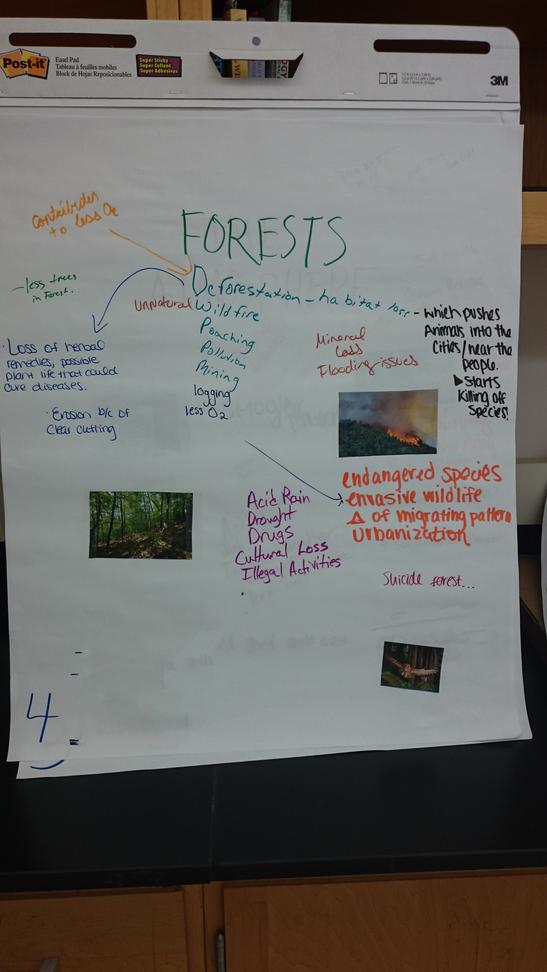 Post-it
Easel Pad
Tableau à feuilles mobiles
Block de Hojas Reposicionables
Super Sticky
Super Collant
Super Adhesivas
3M
contributes
to less O2
FORESTS
- less trees
in Forest.
Deforestation - habitat loss
- which pushes
Animals into the
Cities/near the
people.
▶ starts
Killing off
Species!
Unnatural Wildfire
Poaching
Pollution
Mining
logging
less O2
Mineral
Loss
Flooding issues
· Loss of herbal
remedies, possible
plant life that could
cure diseases.
· Erosion b/c of
Clear cutting
endangered species
envasive wildlife
Δ of migrating pattern
Urbanization
Acid Rain
Drought
Drugs
Cultural Loss
Illegal Activities
Suicide forest...
4